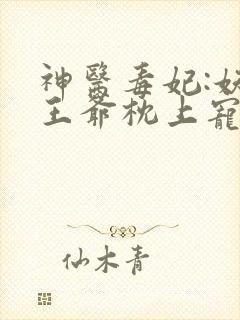 神醫毒妃:妖
王爺枕上寵
仙木青